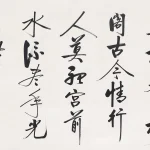 閣古今情行
人莫聽宮前
水流盡年光